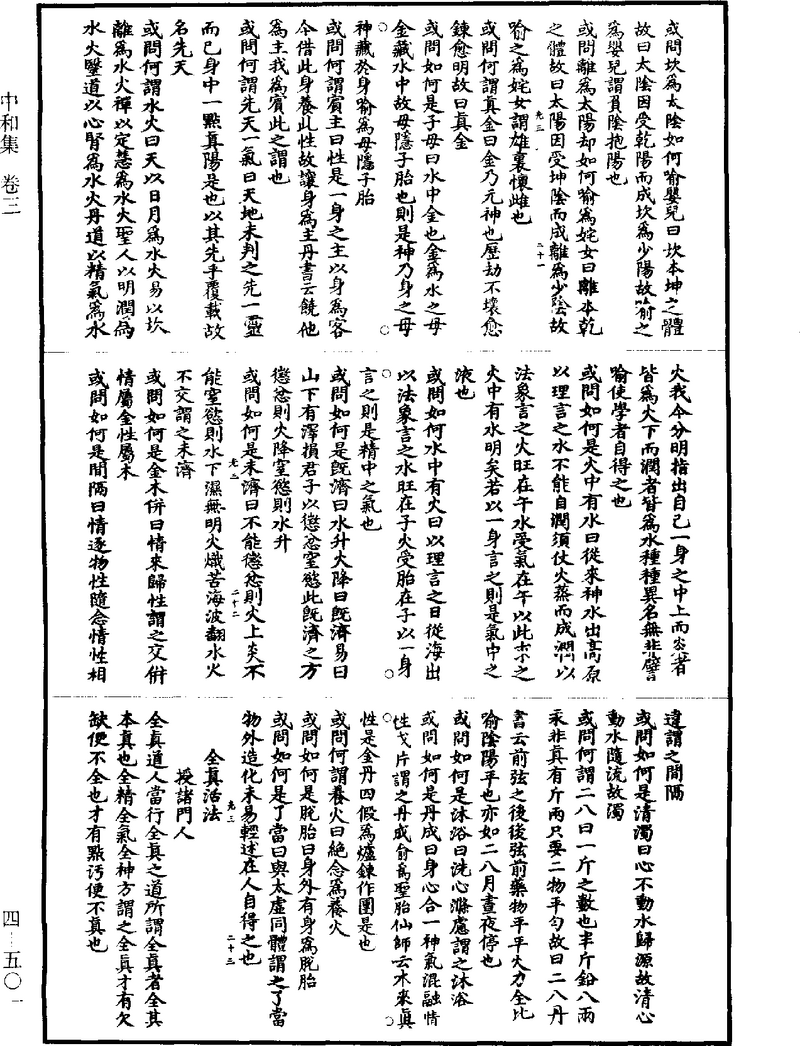 或問坎為太陰如何喻嬰兒曰坎本坤之體
故曰太陰因受乾陽而成坎為少陽故喻之
為嬰兒謂負陰抱陽也
或問離為太陽却如何喻為姹女曰離本乾
之體故曰太陽因受坤陰而成離為少陰故
光三 二十一
喻之為姹女謂雄裏懷雌也
或問何謂真金曰金乃元神也歷劫不壞愈
鍊愈明故曰真金
或問如何是子母曰水中金也金為水之母
金藏水中故母隱子胎也則是神乃身之母
神藏於身喻為母隱子胎
或問何謂賓主曰性是一身之主以身為客
今借此身養此性故讓身為主丹書云饒他
為主我為賓此之謂也
或問何謂先天一氣曰天地未判之先一靈
而已身中一點真陽是也以其先乎覆載故
名先天
或問何謂水火曰天以日月為水火易以坎
離為水火禪以定慧為水火聖人以明潤為
水火醫道以心腎為水火丹道以精氣為水
火我今分明指出自己一身之中上而炎者
皆為火下而潤者皆為水種種異名無非譬
喻使學者自得之也
或問如何是火中有水曰從來神水出高原
以理言之水不能自潤須仗火蒸而成潤以
法象言之火旺在午水受氣在午以此求之
火中有水明矣若以一身言之則是氣中之
液也
或問如何水中有火曰以理言之日從海出
以法象言之水旺在子火受胎在子以一身
言之則是精中之氣也
或問如何是既濟曰水升火降曰既濟易曰
山下有澤損君子以懲忿窒慾此既濟之方
懲忿則火降窒慾則水升
或問如何是未濟曰不能懲忿則火上炎不
光三 二十二
能窒慾則水下濕無明火熾苦海波翻水火
不交謂之未濟
或問如何是金木併曰情來歸性謂之交併
情屬金性屬木
或問如何是間隔曰情逐物性隨念情性相
違謂之間隔
或問如何是清濁曰心不動水歸源故清心
動水隨流故濁
或問何謂二八曰一斤之數也半斤鉛八兩
汞非真有斤兩只要二物平勻故曰二八丹
書云前弦之後後弦前藥物平平火力全比
喻陰陽平也亦如二八月晝夜停也
或問如何是沐浴曰洗心滌慮謂之沐浴
或問如何是丹成曰身心合一神氣混融情
性成片謂之丹成喻為聖胎仙師云本來真
性是金丹四假為爐鍊作團是也
或問何謂養火曰絶念為養火
或問如何是脫胎曰身外有身為脫胎
或問如何是了當曰與太虛同體謂之了當
物外造化未易輕述在人自得之也
光三 二十三
全真活法
授諸門人
全真道人當行全真之道所謂全真者全其
本真也全精全氣全神方謂之全真才有欠
缺便不全也才有點污便不真也
中和集 卷三
四一五〇一